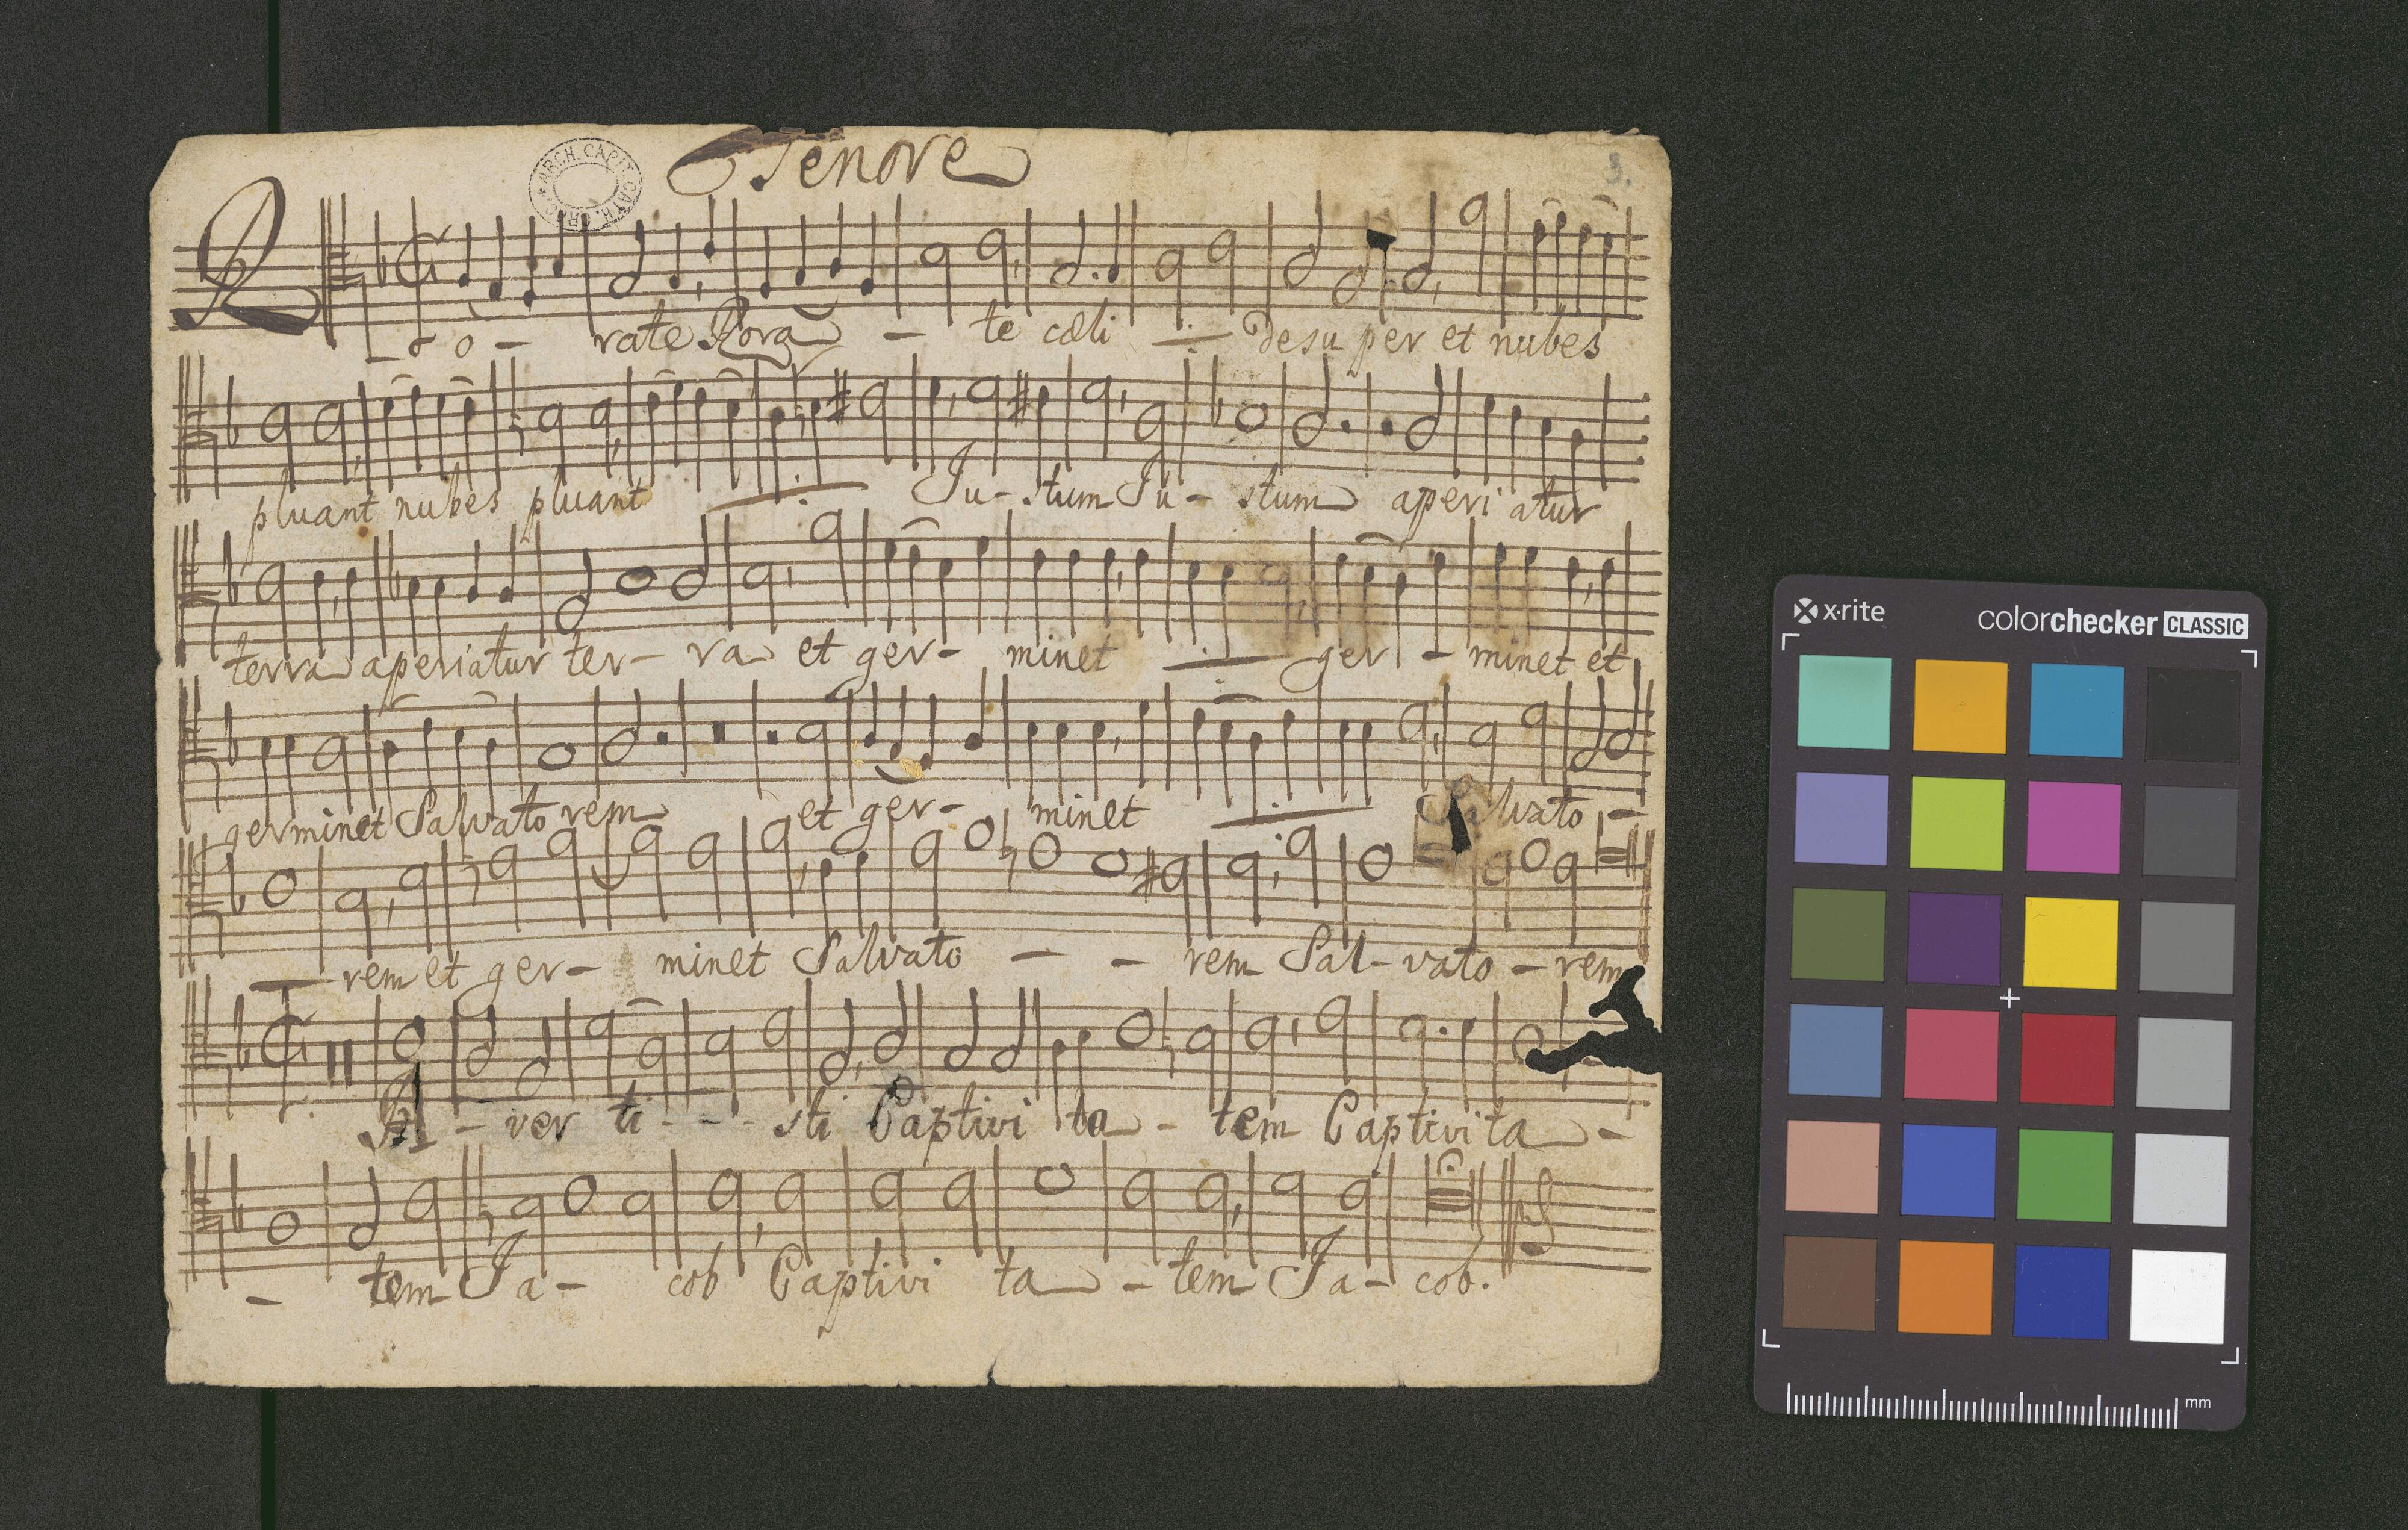 Tenore
3.
ARCH. CAPIT. CATH.
Ro o - rate Rora - te cœli desuper et nubes
pluant nubes pluant Ju - stum Ju - stum aperi atur
terra aperiatur ter - ra et ger - minet ger - minet et
germinet Salvato rem et ger - minet Salvato -
- rem et ger - minet Salvato - - rem Sal - vato - rem
A - ver ti - - - sti Captivi ta - tem Captivi ta -
- tem Ja - cob Captivi ta - tem Ja - cob.
x·rite
colorchecker CLASSIC
mm